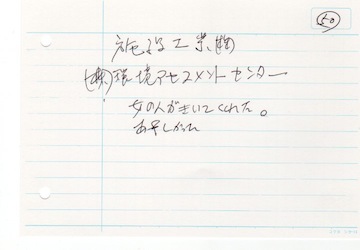 50
施設工業(株)
(株)環境アセスメントセンター
女の人がきいてくれた。
あやしかった